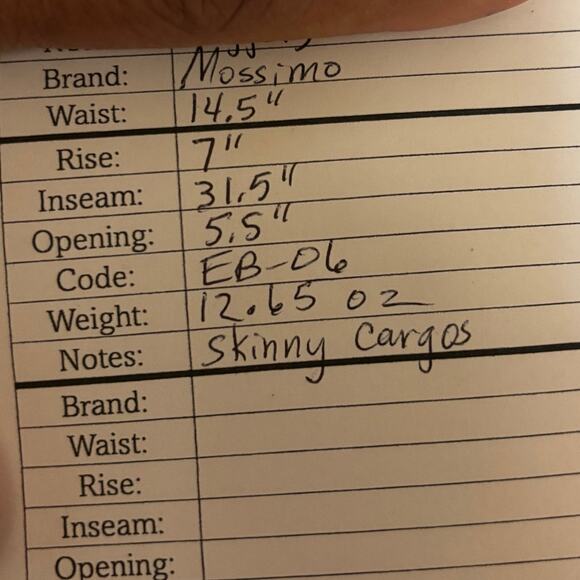 Brand: Mossimo
Waist: 14.5"
Rise: 7"
Inseam: 31.5"
Opening: 5.5"
Code: EB-06
Weight: 12.65 oz
Notes: Skinny Cargos
Brand:
Waist:
Rise:
Inseam:
Opening: